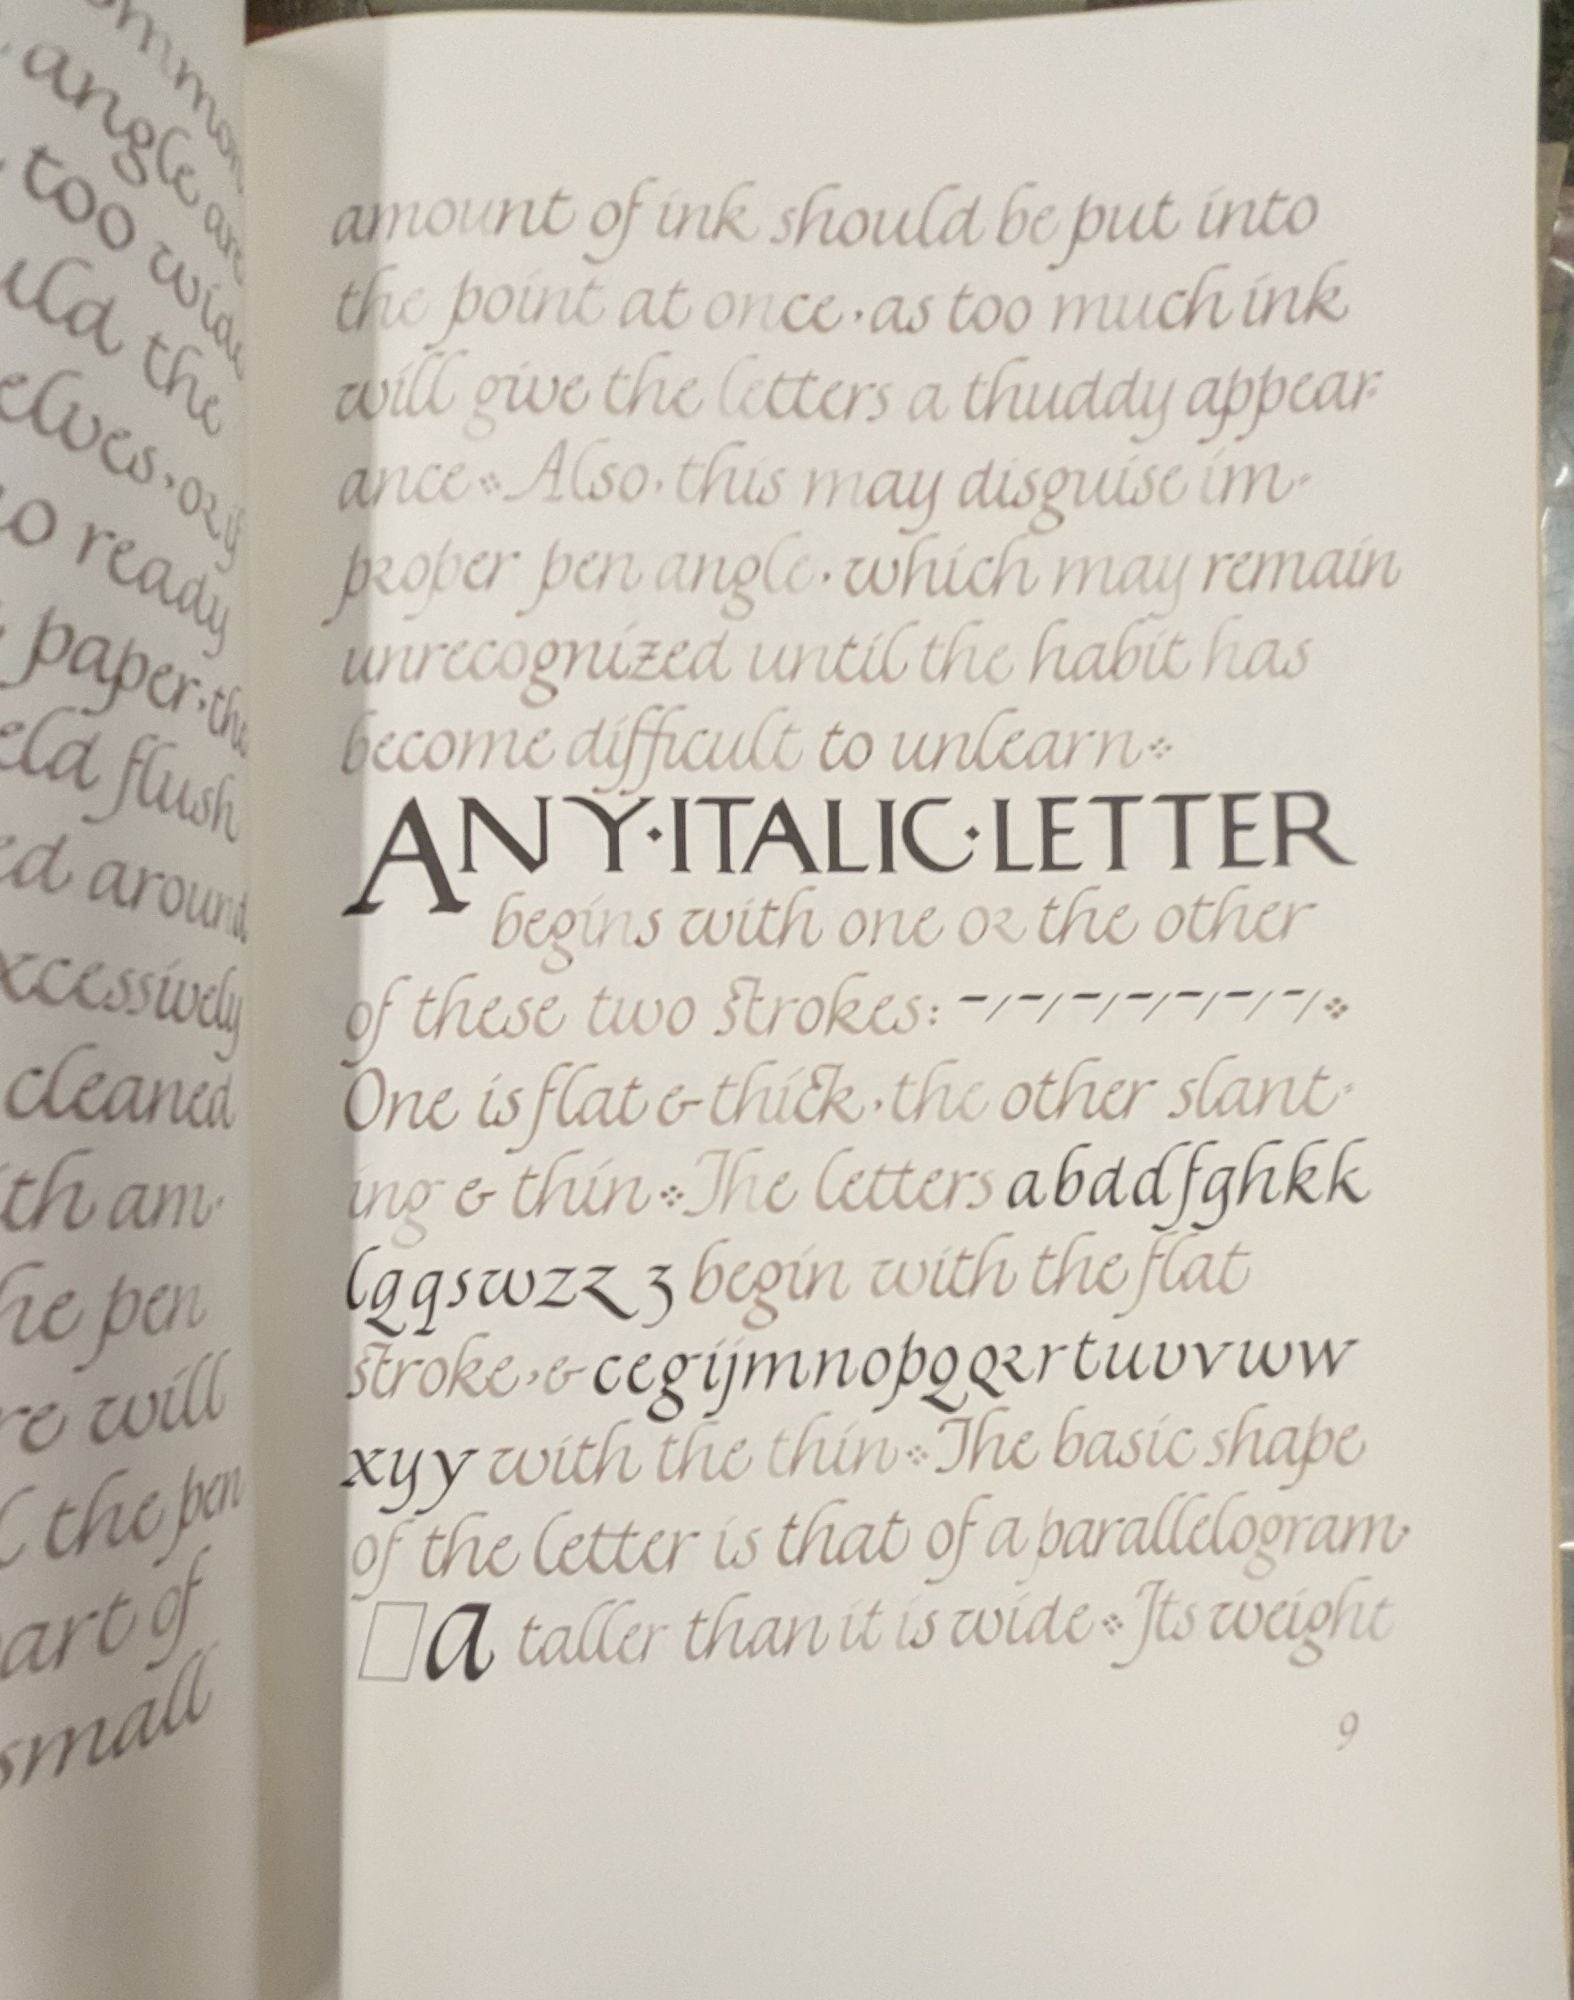 ommon
angle are
too wide
uld the
elves, or if
o ready
paper, the
eld flush
ed around
xcessively
cleaned
ith am-
he pen
re will
the pen
part of
small
amount of ink should be put into
the point at once, as too much ink
will give the letters a thuddy appear-
ance ⁘ Also, this may disguise im-
proper pen angle, which may remain
unrecognized until the habit has
become difficult to unlearn ⁘
ANY·ITALIC·LETTER
begins with one or the other
of these two strokes: –/–/–/–/–/–/–/ ⁘
One is flat & thick, the other slant-
ing & thin ⁘ The letters abddfghkk
lqqswzzʒ begin with the flat
stroke, & cegijmnopqqrrtuvvww
xyy with the thin ⁘ The basic shape
of the letter is that of a parallelogram,
a taller than it is wide ⁘ Its weight
9